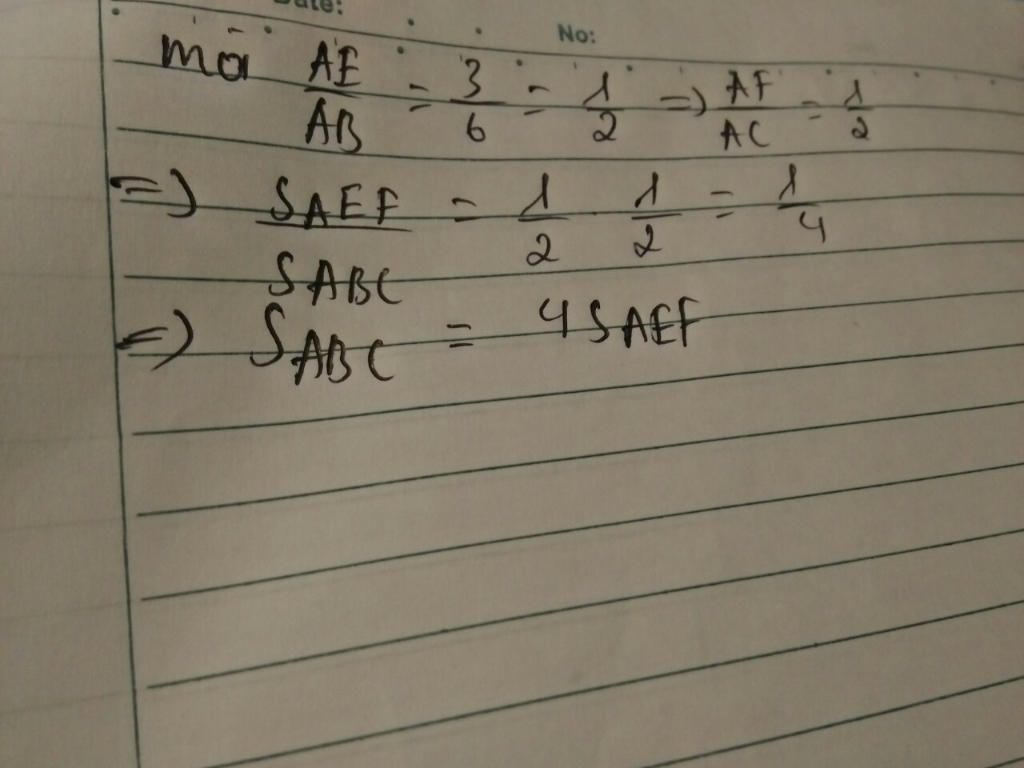 Date:
No:
mà AE/AB = 3/6 = 1/2 => AF/AC = 1/2
=> SAEF/SABC = 1/2 . 1/2 = 1/4
=> SABC = 4SAEF